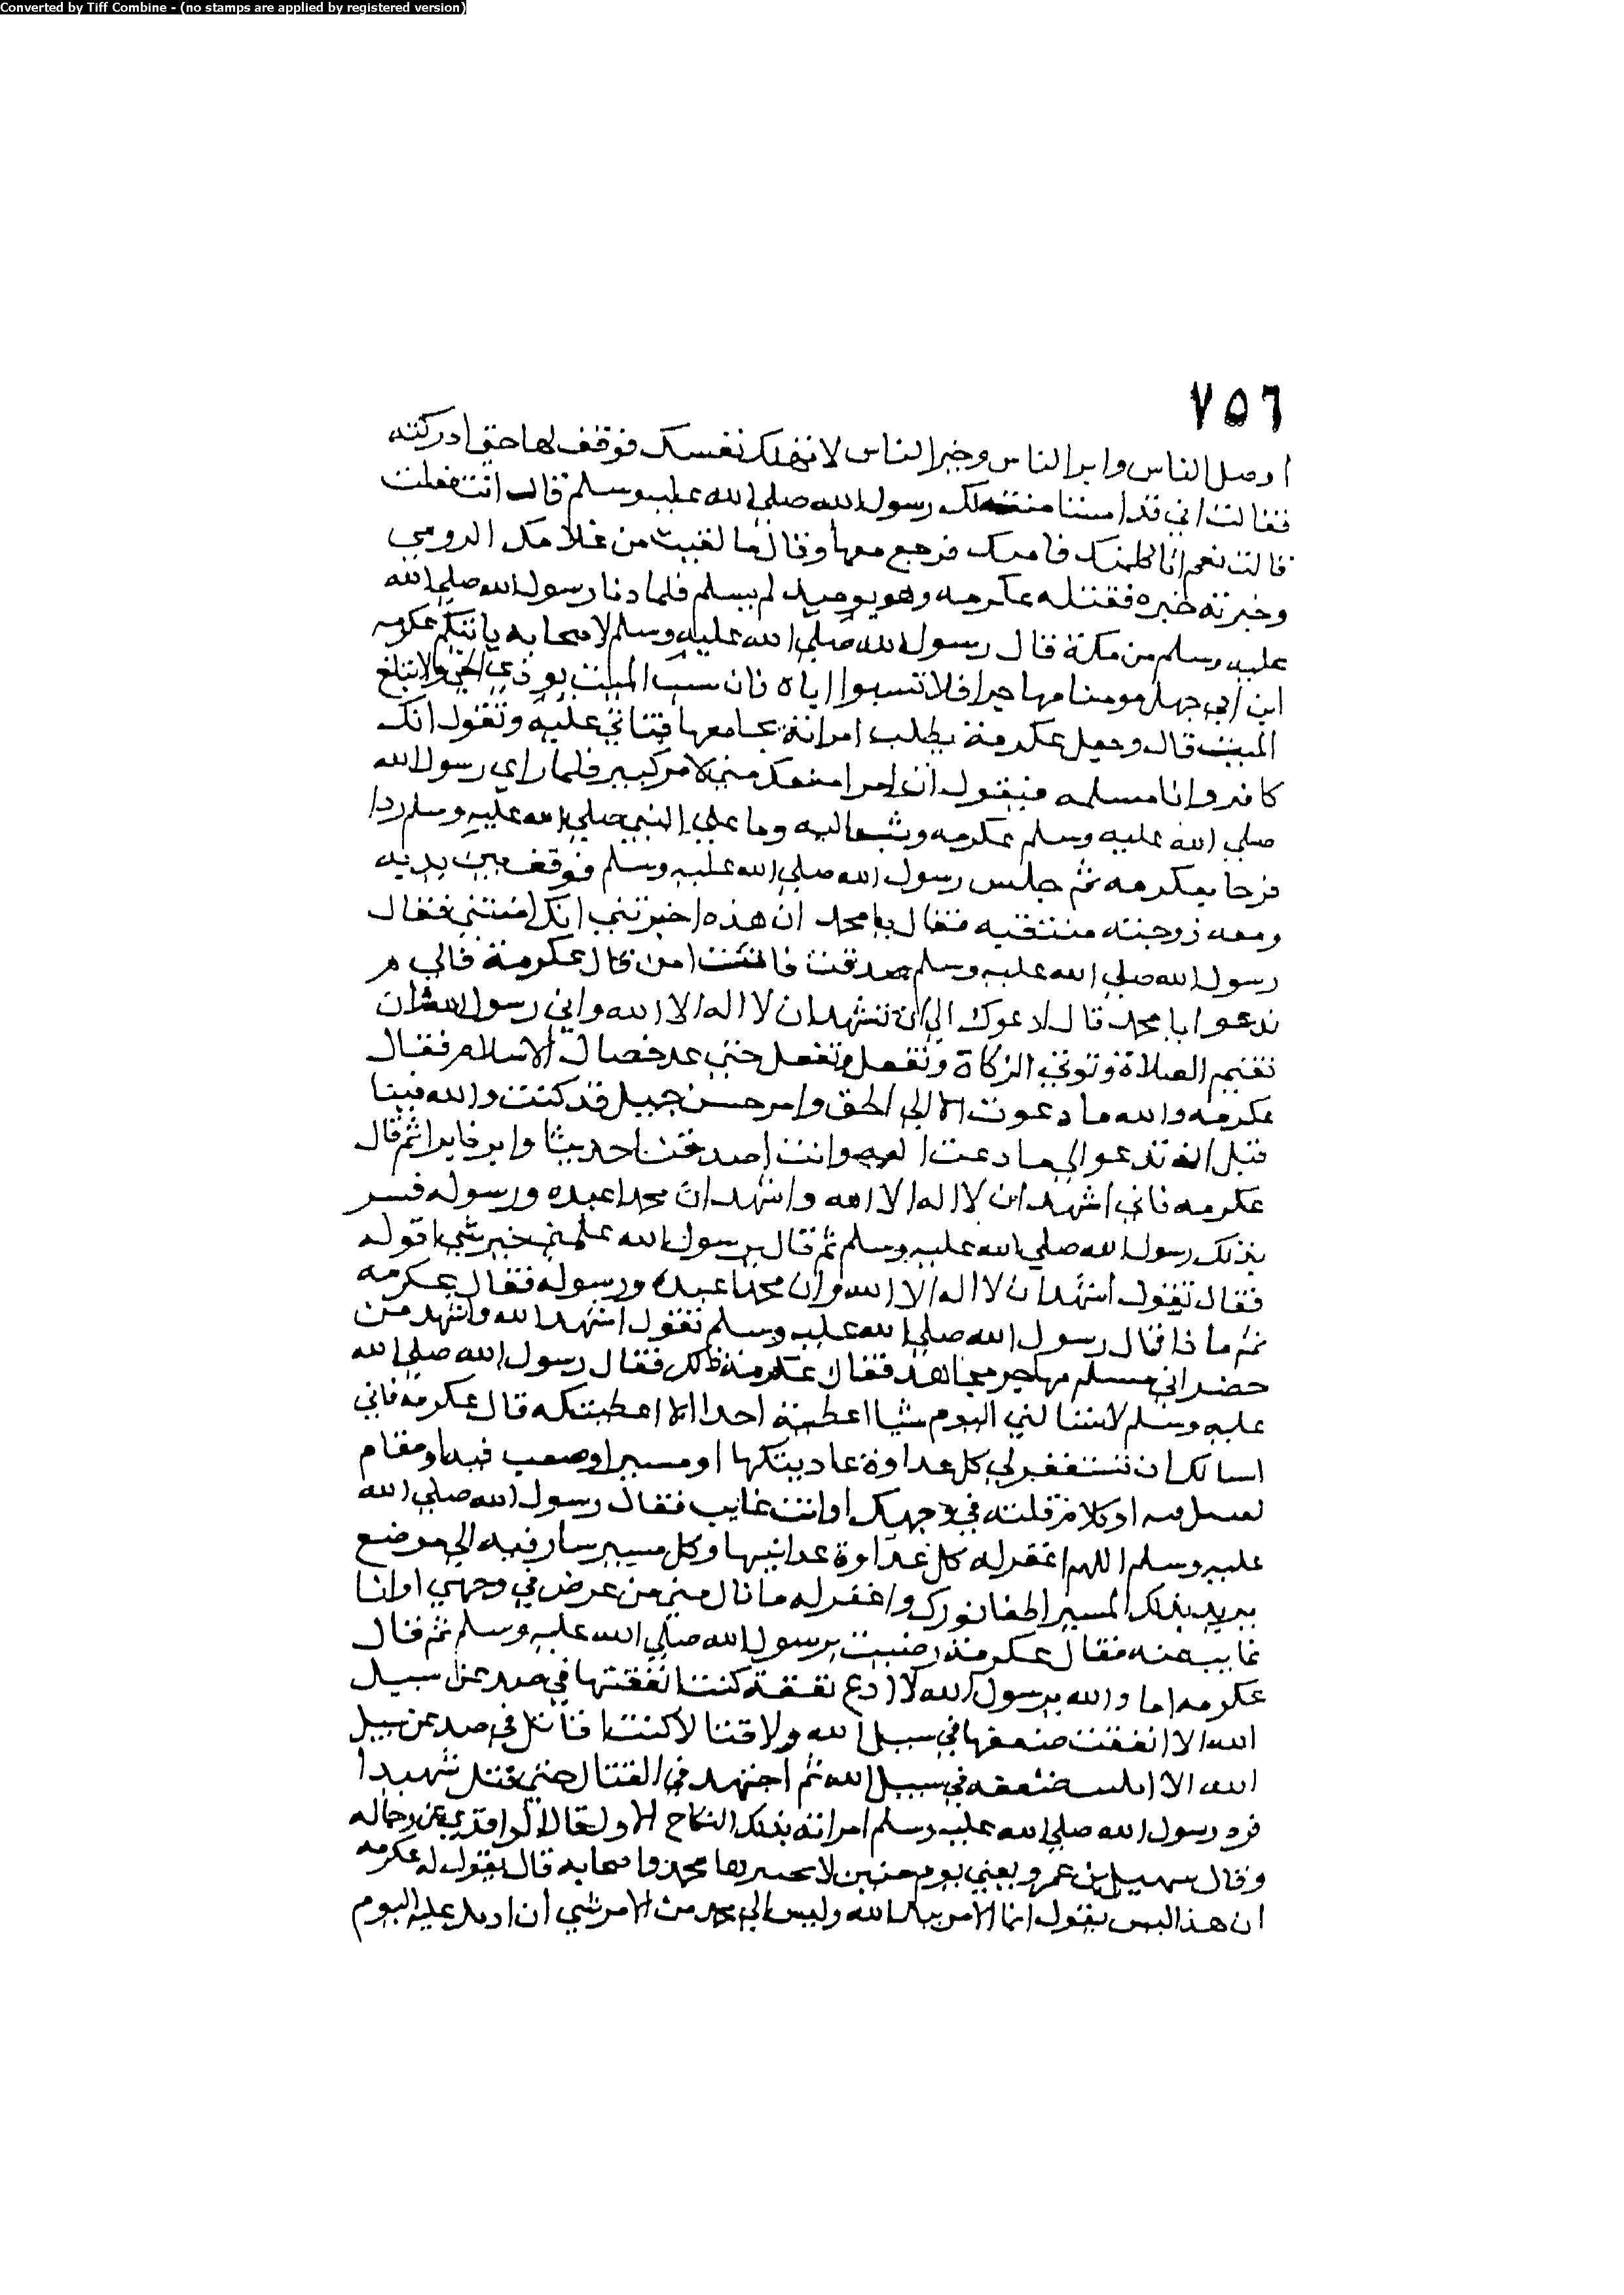 Converted by Tiff Combine - (no stamps are applied by registered version)
٧٥٦
اوصل الناس وابر الناس وخير الناس لا تهلك نفسك فوقف لها حتي ادركته
فقالت اني قد استامنت لك رسول الله صلي الله عليه وسلم قال انت فعلت
قالت نعم انا كلمته فامنك فرجع معها وقال ما لقيت من غلامك الرومي
وخبرته خبره فقتله عكرمه وهو يوميذ لم يسلم فلما دنا رسول الله صلي الله
عليه وسلم من مكة قال رسول الله صلي الله عليه وسلم لاصحابه ياتيكم عكرمه
ابن ابي جهل مومنا مهاجرا فلا تسبوا اباه فان سب الميت يوذي الحي ولا تبلغ
الميت قال وجعل عكرمة يطلب امراته يجامعها فتابي عليه وتقول انك
كافر وانا مسلمه فيقول ان امرا منعك مني لامر كبير فلما راي رسول الله
صلي الله عليه وسلم عكرمه وثب اليه وما علي النبي صلي الله عليه وسلم ردا
فرحا بعكرمه ثم جلس رسول الله صلي الله عليه وسلم فوقف بين يديه
ومعه زوجته منتقبه فقال يا محمد ان هذه اخبرتني انك امنتني فقال
رسول الله صلي الله عليه وسلم صدقت فانت امن قال عكرمة فالي م
تدعوا يا محمد قال ادعوك الي ان تشهد ان لا اله الا الله واني رسول الله وان
تقيم الصلاة وتوتي الزكاة وتفعل وتفعل حتي عد خصال الاسلام فقال
عكرمه والله ما دعوت الا الي الحق وامر حسن جميل قد كنت والله فينا
قبل ان تدعو الي ما دعت اليه وانت اصدقنا حديثا وابرنا برا ثم قال
عكرمه فاني اشهد ان لا اله الا الله واشهد ان محمدا عبده ورسوله فسر
بذلك رسول الله صلي الله عليه وسلم ثم قال يرسول الله علمني خير شي اقوله
فقال تقول اشهد ان لا اله الا الله وان محمدا عبده ورسوله فقال عكرمه
ثم ماذا قال رسول الله صلي الله عليه وسلم تقول اشهد الله واشهد من
حضر اني مسلم مهاجر مجاهد فقال عكرمة ذلك فقال رسول الله صلي الله
عليه وسلم لا تسالني اليوم شيا اعطيه احدا الا اعطيتكه قال عكرمة فاني
اسالك ان تستغفر لي كل عداوة عاديتكها او مسير اوضعت فيه او مقام
لقيتك فيه او كلام قلته في وجهك او انت غايب فقال رسول الله صلي الله
عليه وسلم اللهم اغفر له كل عداوة عدانيها وكل مسير سار فيه الي موضع
يريد بذلك المسير اطفا نورك واغفر له ما نال مني من عرض في وجهي او انا
غايب عنه فقال عكرمة رضيت يرسول الله صلي الله عليه وسلم ثم قال
عكرمه اما والله يرسول الله لا ادع نفقة كنت انفقتها في صد عن سبيل
الله الا انفقت ضعفها في سبيل الله ولا قتالا كنت اقاتل في صد عن سبيل
الله الا ابليت ضعفه في سبيل الله ثم اجتهد في القتال حتي قتل شهيدا
فرد رسول الله صلي الله عليه وسلم امراته بذلك النكاح الاول قال الواقدي عن رجاله
وقال سهيل بن عمرو يعني يوم حنين لا يجتبرها محمد واصحابه قال يقول له عكرمه
ان هذا ليس يقول انما الامر بيد الله وليس الي محمد من الامر شي ان اديل عليه اليوم